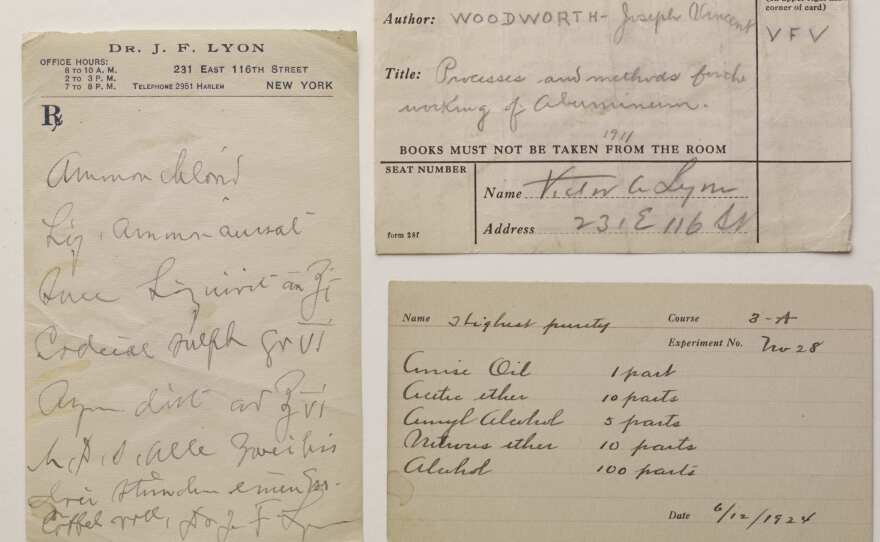 DR. J. F. LYON
OFFICE HOURS:
8 TO 10 A. M.
2 TO 3 P. M.
7 TO 8 P. M.
231 EAST 116TH STREET
TELEPHONE 2951 HARLEM
NEW YORK
℞
Ammon chlorid
Liq. Ammon
Succ Liquirit āā ʒi
sulph gr VI
dist ad ℥ VI
M. D. S. Alle zwei bis
drei Stunden einen
voll, Dr J F Lyon
corner of card)
Author: WOODWORTH- Joseph Vincent
VFV
Title: Processes and methods for the
working of Aluminum.
1911
BOOKS MUST NOT BE TAKEN FROM THE ROOM
SEAT NUMBER
Name Victor A Lyon
Address 231 E 116 St
form 28f
Name Highest purity
Course 3-A
Experiment No. No 28
Anise Oil 1 part
Acetic ether 10 parts
Amyl Alcohol 5 parts
Nitrous ether 10 parts
Alcohol 100 parts
Date 6/12/1924